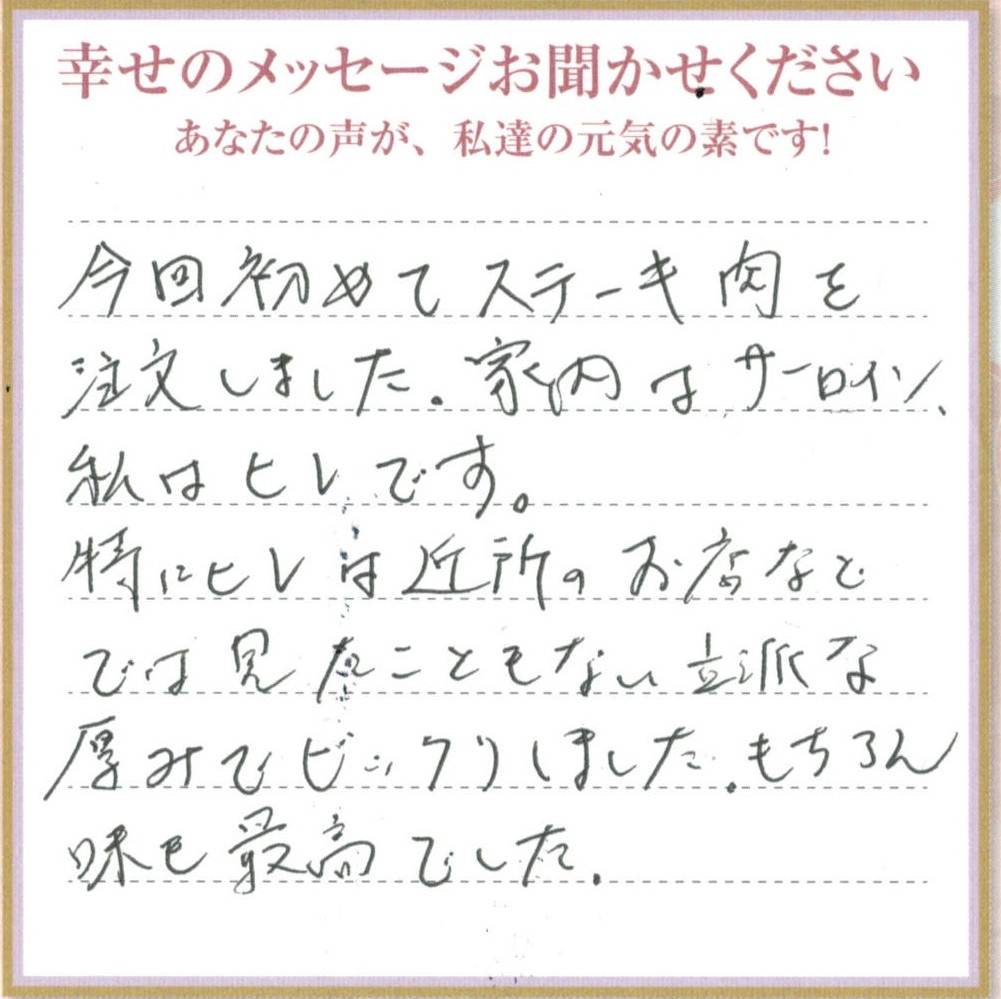 幸せのメッセージお聞かせください
あなたの声が、私達の元気の素です!
今回初めてステーキ肉を
注文しました。家内はサーロイン、
私はヒレです。
特にヒレは近所のお店など
では見たこともない立派な
厚みでビックリしました。もちろん
味も最高でした。